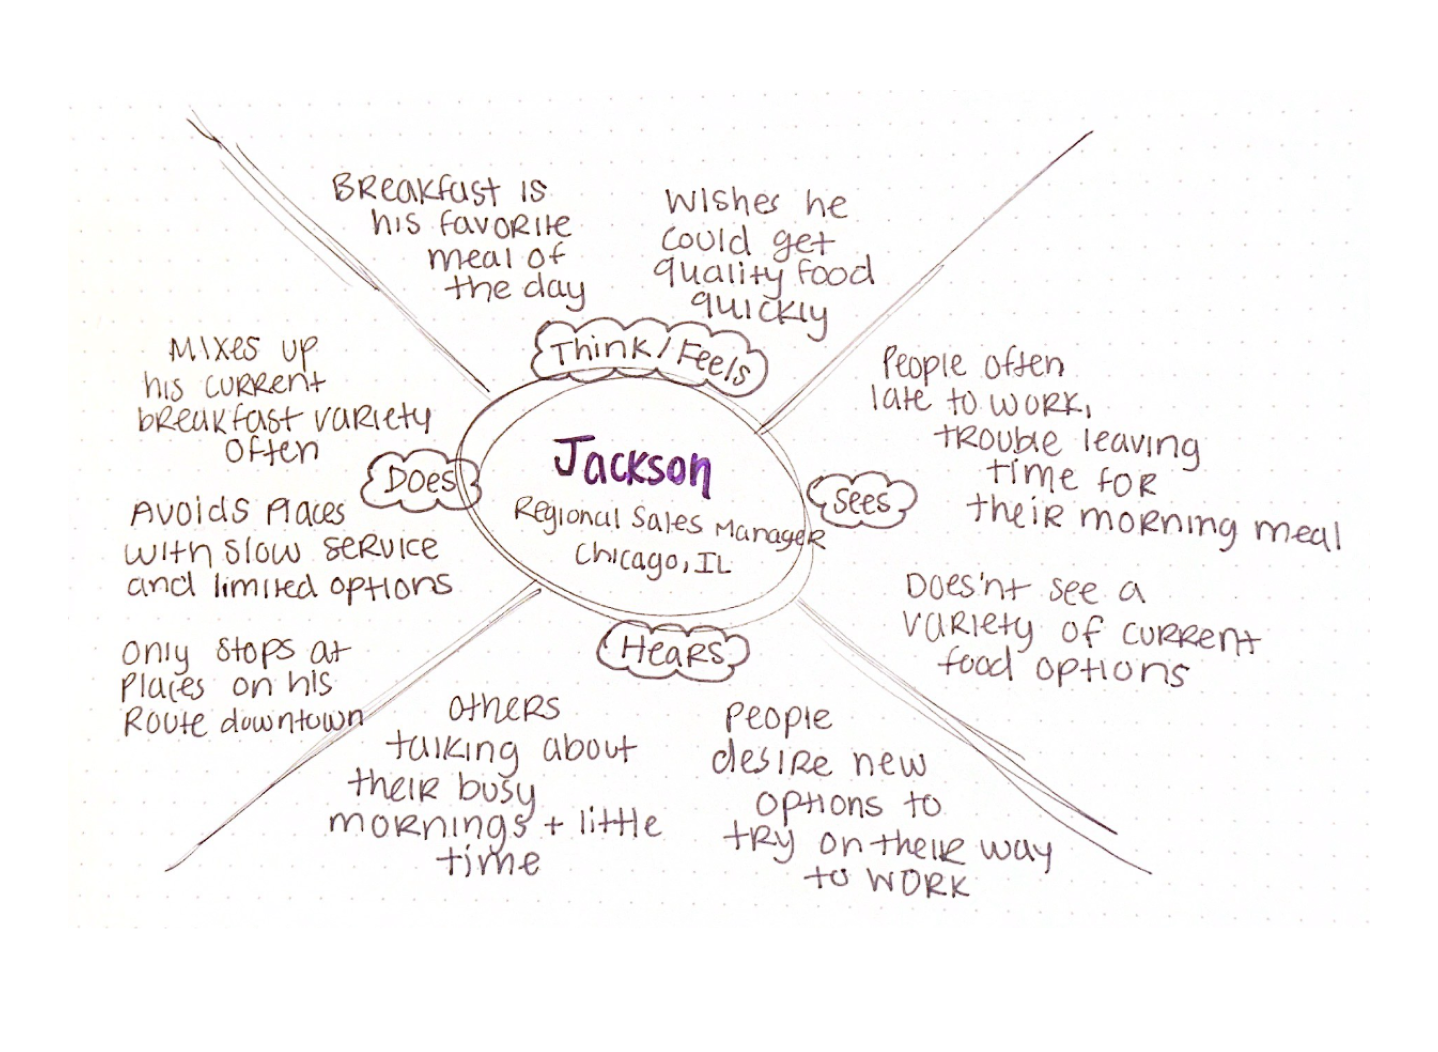 Breakfast is
his favorite
meal of
the day
Wishes he
could get
quality food
quickly
Think/Feels
Mixes up
his current
breakfast variety
often
Does
Avoids places
with slow service
and limited options
only stops at
places on his
Route downtown
Jackson
Regional Sales Manager
Chicago, IL
Sees
People often
late to work,
trouble leaving
time for
their morning meal
Does'nt see a
variety of current
food options
Hears
others
talking about
their busy
mornings + little
time
People
desire new
options to
try on their way
to work